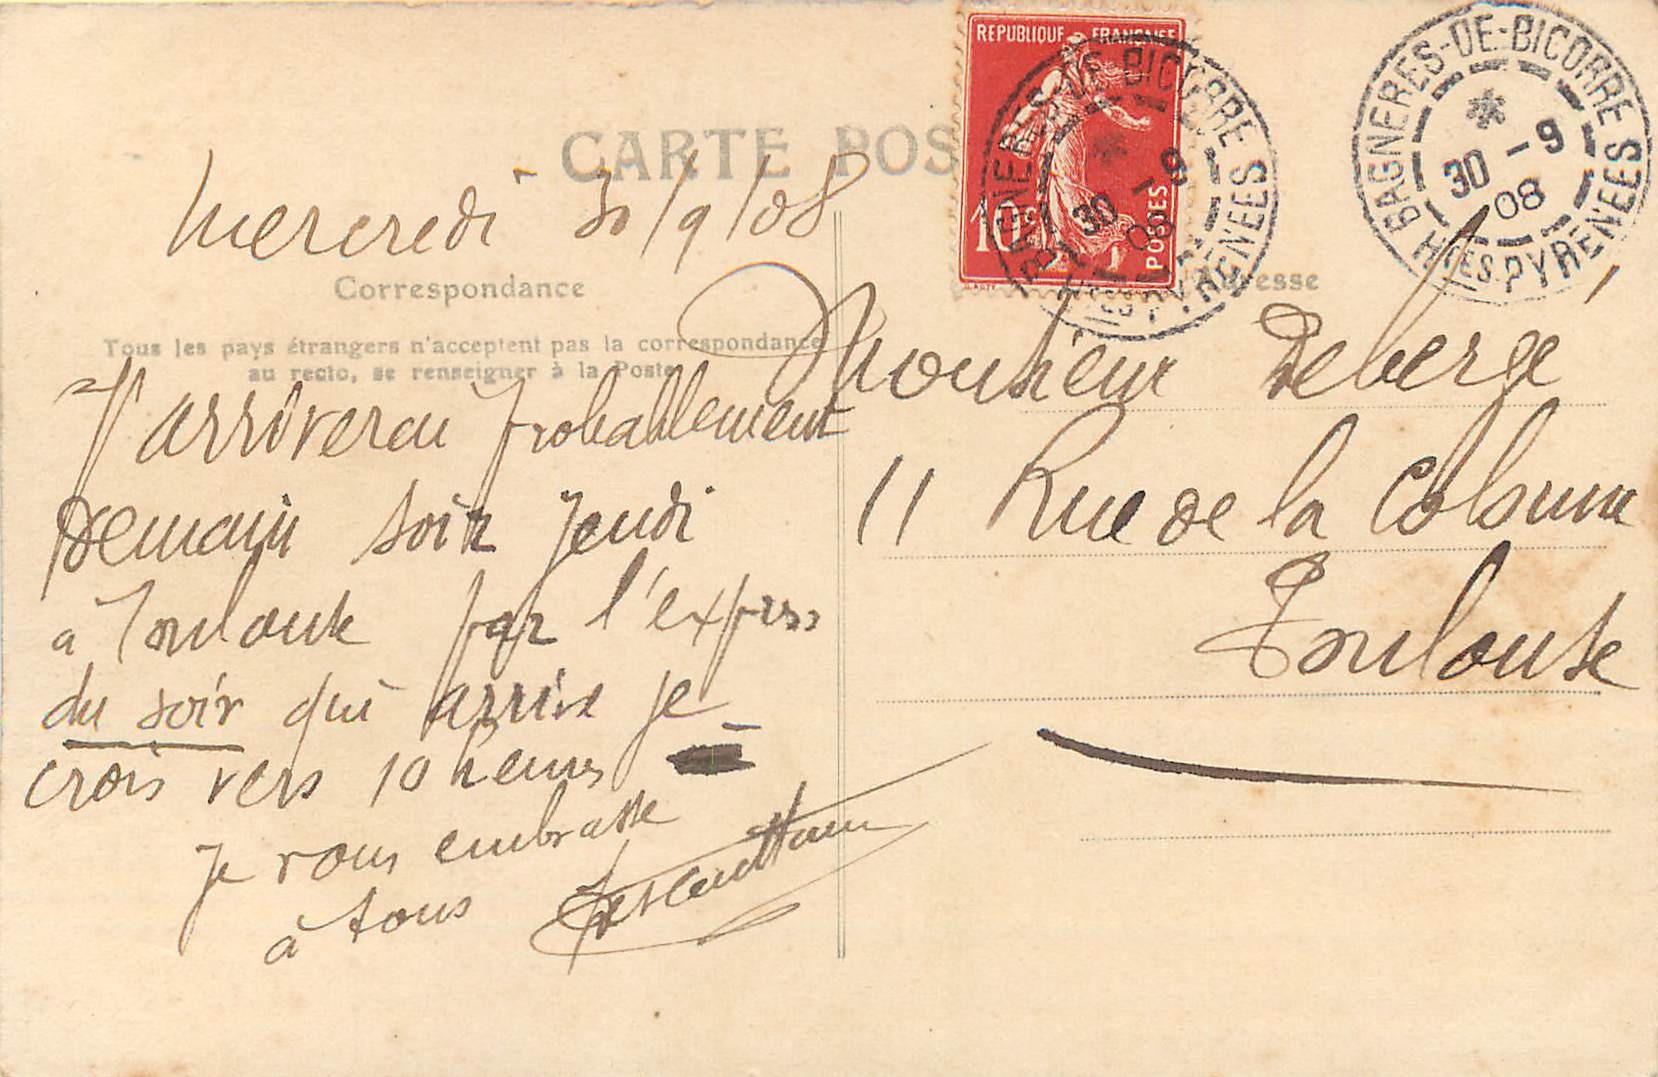 CARTE POS
REPUBLIQUE FRANÇAISE
10c
POSTES
BAGNERES-DE-BIGORRE
30 -9
08
HTES PYRÉNÉES
BAGNERES-DE-BIGORRE
30 -9
08
HTES PYRÉNÉES
Mercredi 30/9/08
Correspondance
Tous les pays étrangers n'acceptent pas la correspondance
au recto, se renseigner à la Poste
J'arriverai probablement
demain soir jeudi
à Toulouse par l'express
du soir qui arrive je
crois vers 10 heures
Je vous embrasse
à tous
Adresse
Monsieur Debergé
11 Rue de la Colonne
Toulouse